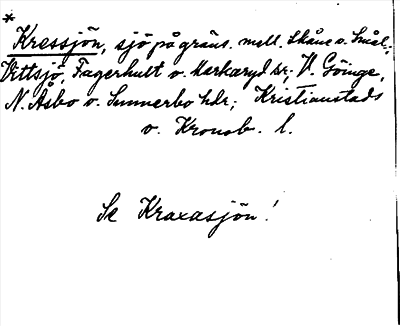 *
Kressjön, sjö på gräns. mell. Skåne o. Smål.;
Vittsjö, Fagerhult o. Markaryd sr; V. Göinge,
N. Åsbo o. Sunnerbo hdr; Kristianstads
o. Kronob. l.
Se Kraxasjön!